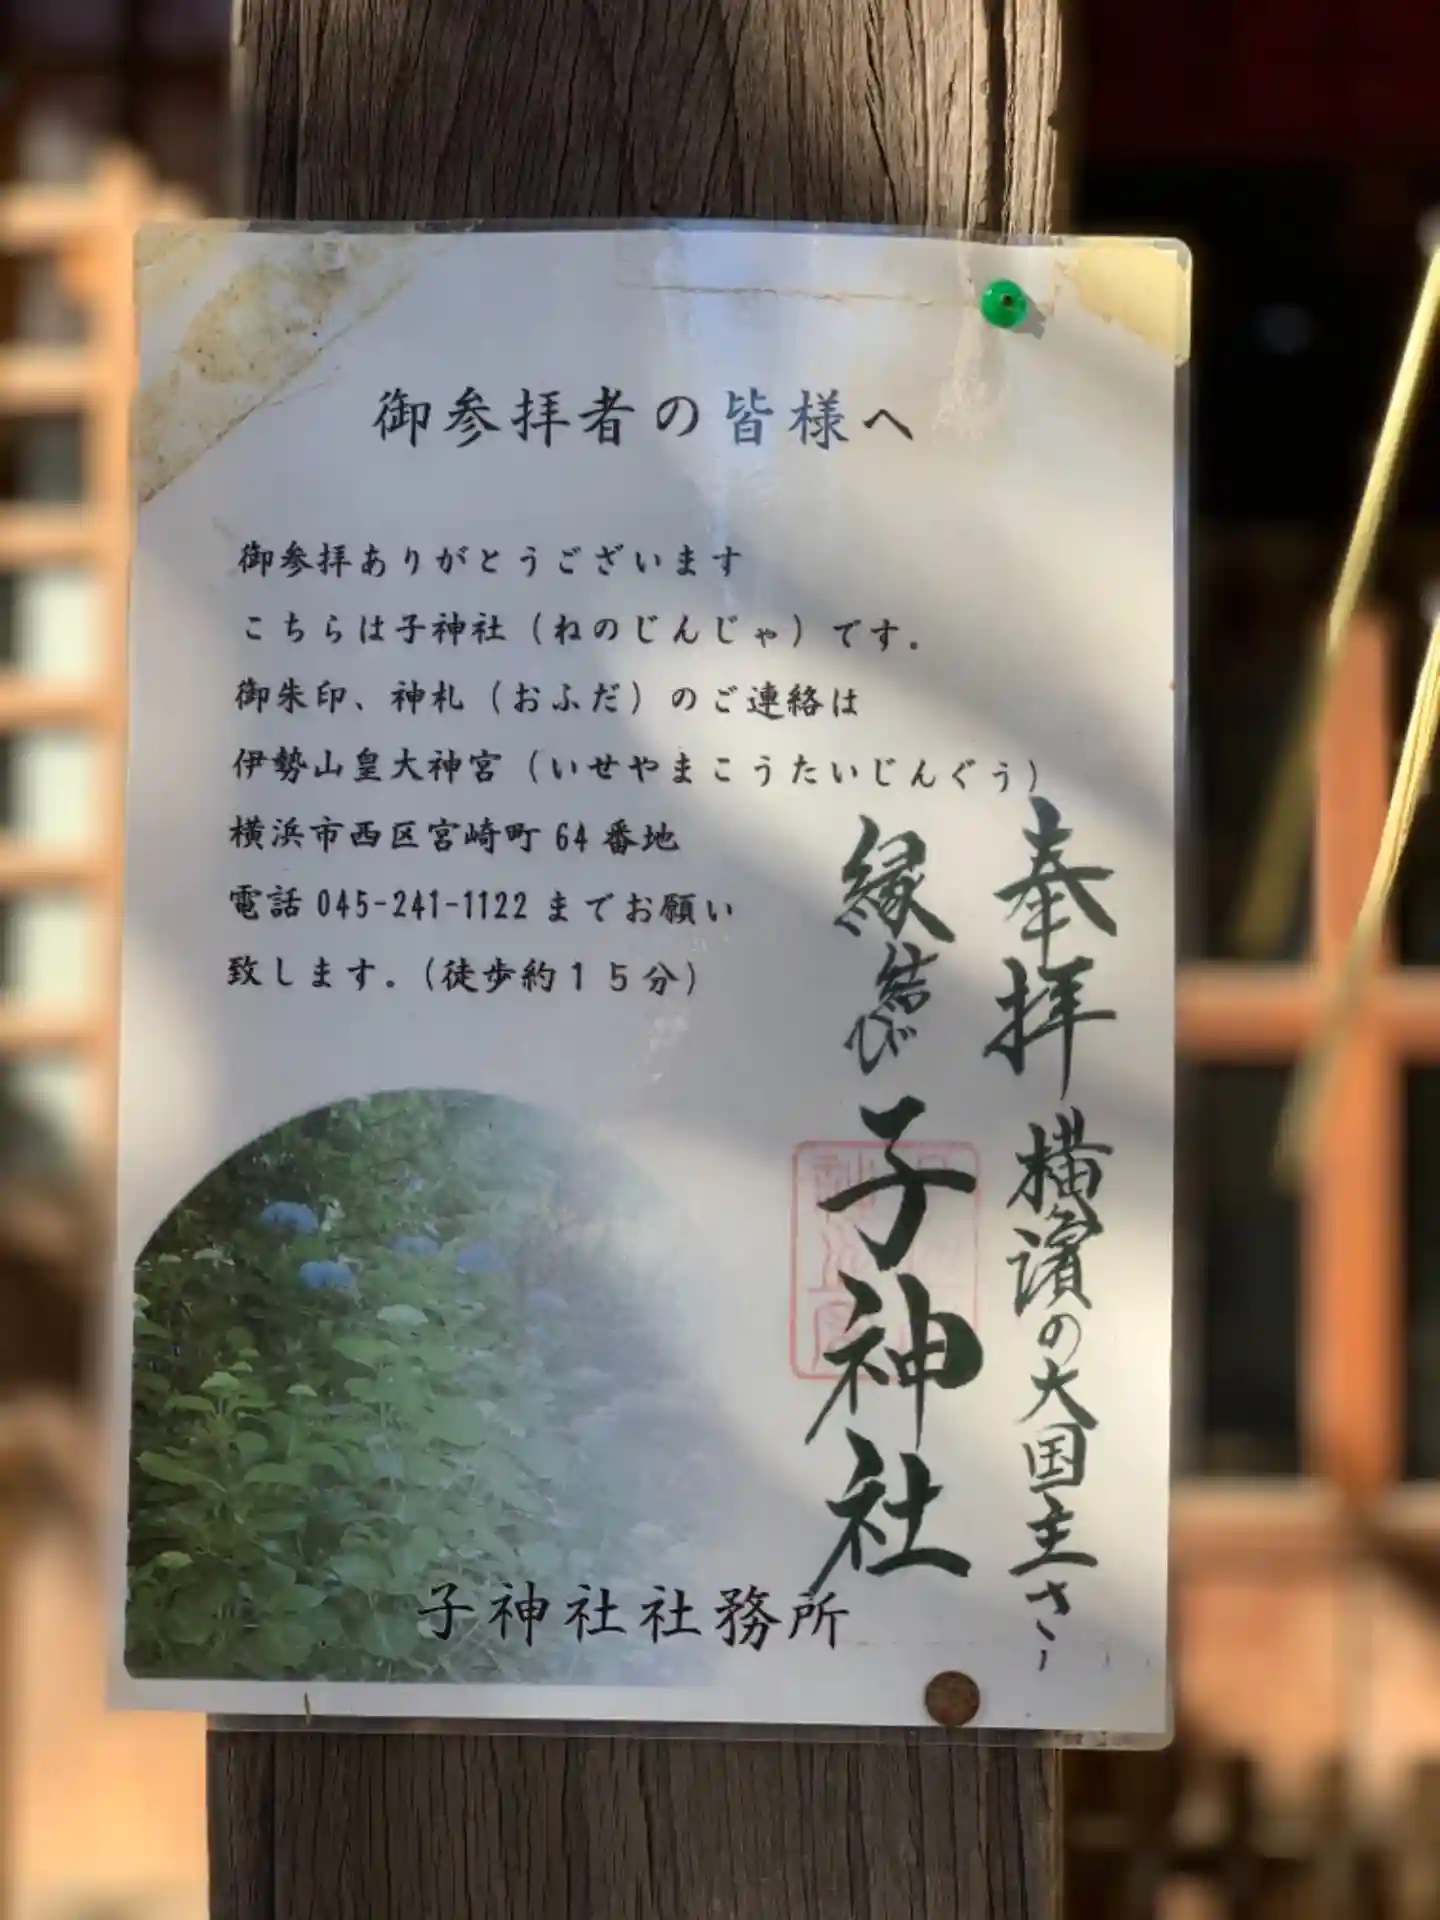 御参拝者の皆様へ
御参拝ありがとうございます
こちらは子神社（ねのじんじゃ）です。
御朱印、神札（おふだ）のご連絡は
伊勢山皇大神宮（いせやまこうたいじんぐう）
横浜市西区宮崎町64番地
電話 045-241-1122 までお願い
致します。（徒歩約１５分）
奉拝 横濱の大国主さま
縁結び 子神社
子神社社務所